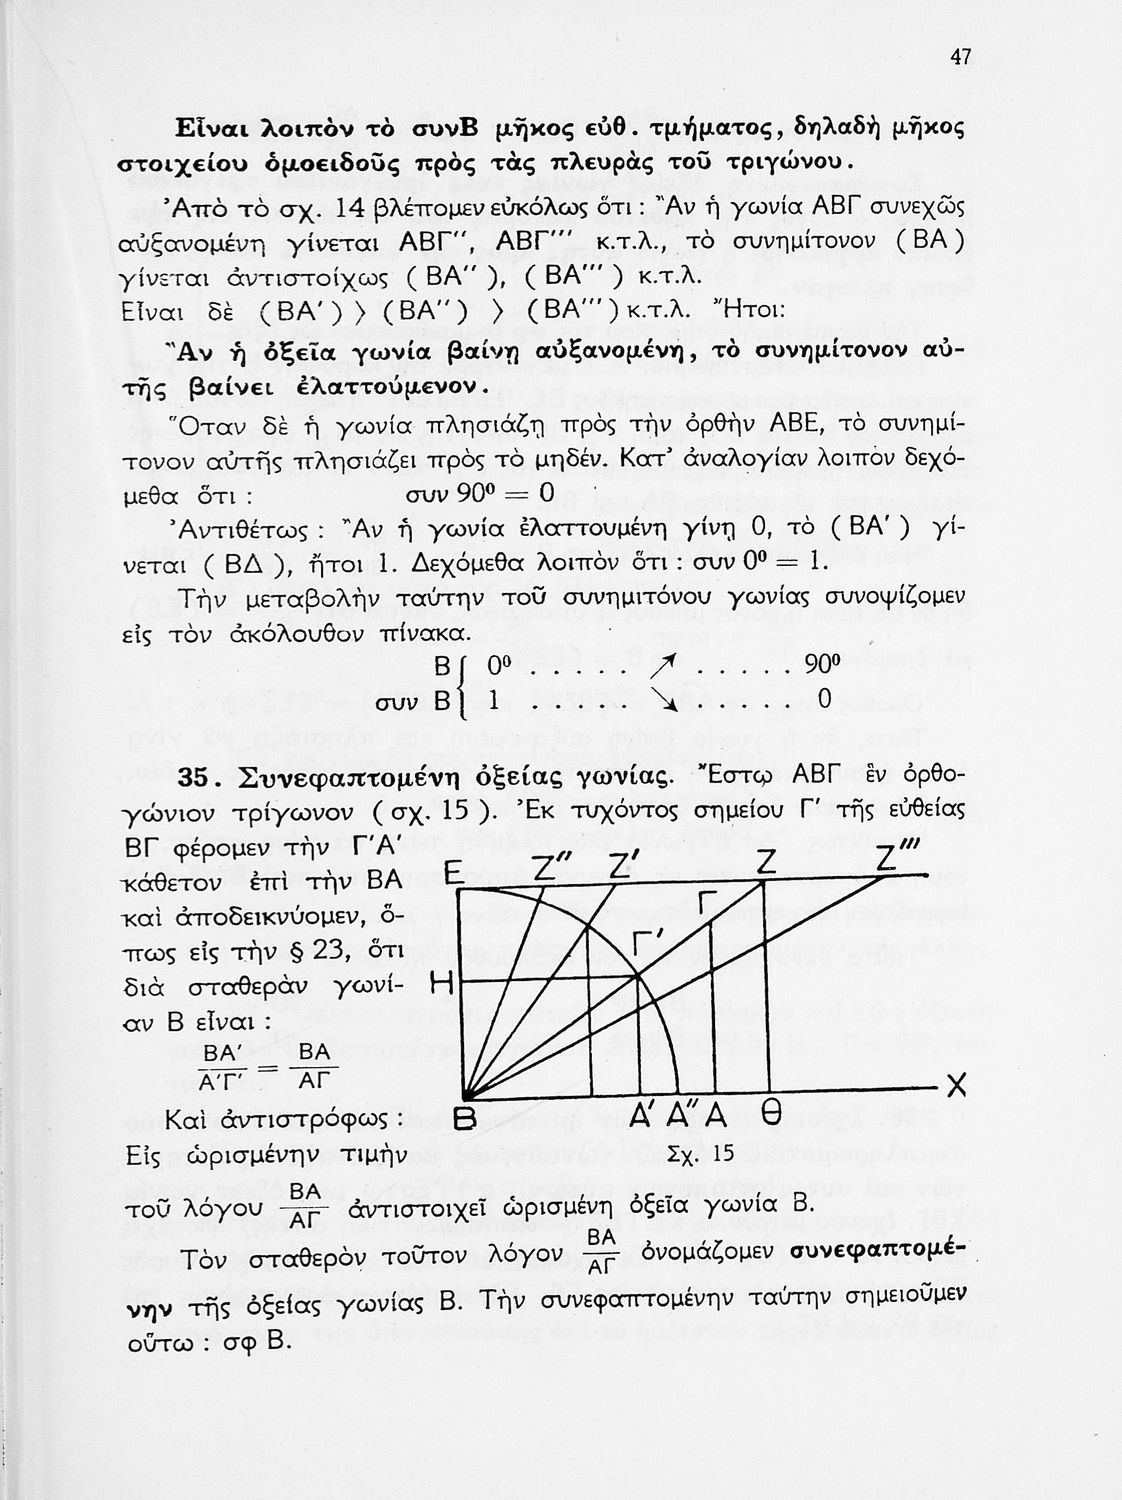 47
Εἶναι λοιπὸν τὸ συνΒ μῆκος εὐθ. τμήματος, δηλαδὴ μῆκος
στοιχείου ὁμοειδοῦς πρὸς τὰς πλευρὰς τοῦ τριγώνου.
Ἀπὸ τὸ σχ. 14 βλέπομεν εὐκόλως ὅτι : Ἂν ἡ γωνία ΑΒΓ συνεχῶς
αὐξανομένη γίνεται ΑΒΓ'', ΑΒΓ''' κ.τ.λ., τὸ συνημίτονον ( ΒΑ )
γίνεται ἀντιστοίχως ( ΒΑ'' ), ( ΒΑ''' ) κ.τ.λ.
Εἶναι δὲ ( ΒΑ' ) > ( ΒΑ'' ) > ( ΒΑ''' ) κ.τ.λ. Ἤτοι:
Ἂν ἡ ὀξεῖα γωνία βαίνῃ αὐξανομένη, τὸ συνημίτονον αὐ-
τῆς βαίνει ἐλαττούμενον.
Ὅταν δὲ ἡ γωνία πλησιάζῃ πρὸς τὴν ὀρθὴν ΑΒΕ, τὸ συνημί-
τονον αὐτῆς πλησιάζει πρὸς τὸ μηδέν. Κατ' ἀναλογίαν λοιπὸν δεχό-
μεθα ὅτι : συν 90⁰ = 0
Ἀντιθέτως : Ἂν ἡ γωνία ἐλαττουμένη γίνῃ 0, τὸ ( ΒΑ' ) γί-
νεται ( ΒΔ ), ἤτοι 1. Δεχόμεθα λοιπὸν ὅτι : συν 0⁰ = 1.
Τὴν μεταβολὴν ταύτην τοῦ συνημιτόνου γωνίας συνοψίζομεν
εἰς τὸν ἀκόλουθον πίνακα.
Β { 0⁰ . . . . . ↗ . . . . . 90⁰
συν Β { 1 . . . . . ↘ . . . . . 0
35. Συνεφαπτομένη ὀξείας γωνίας. Ἔστω ΑΒΓ ἓν ὀρθο-
γώνιον τρίγωνον ( σχ. 15 ). Ἐκ τυχόντος σημείου Γ' τῆς εὐθείας
ΒΓ φέρομεν τὴν Γ'Α'
κάθετον ἐπὶ τὴν ΒΑ
καὶ ἀποδεικνύομεν, ὅ-
πως εἰς τὴν § 23, ὅτι
διὰ σταθερὰν γωνί-
αν Β εἶναι :
ΒΑ'/Α'Γ' = ΒΑ/ΑΓ
Καὶ ἀντιστρόφως :
Εἰς ὡρισμένην τιμὴν
Ε Ζ'' Ζ' Ζ Ζ'''
Γ
Γ'
Η
Χ
Β Α' Α'' Α Θ
Σχ. 15
τοῦ λόγου ΒΑ/ΑΓ ἀντιστοιχεῖ ὡρισμένη ὀξεῖα γωνία Β.
Τὸν σταθερὸν τοῦτον λόγον ΒΑ/ΑΓ ὀνομάζομεν συνεφαπτομέ-
νην τῆς ὀξείας γωνίας Β. Τὴν συνεφαπτομένην ταύτην σημειοῦμεν
οὕτω : σφ Β.